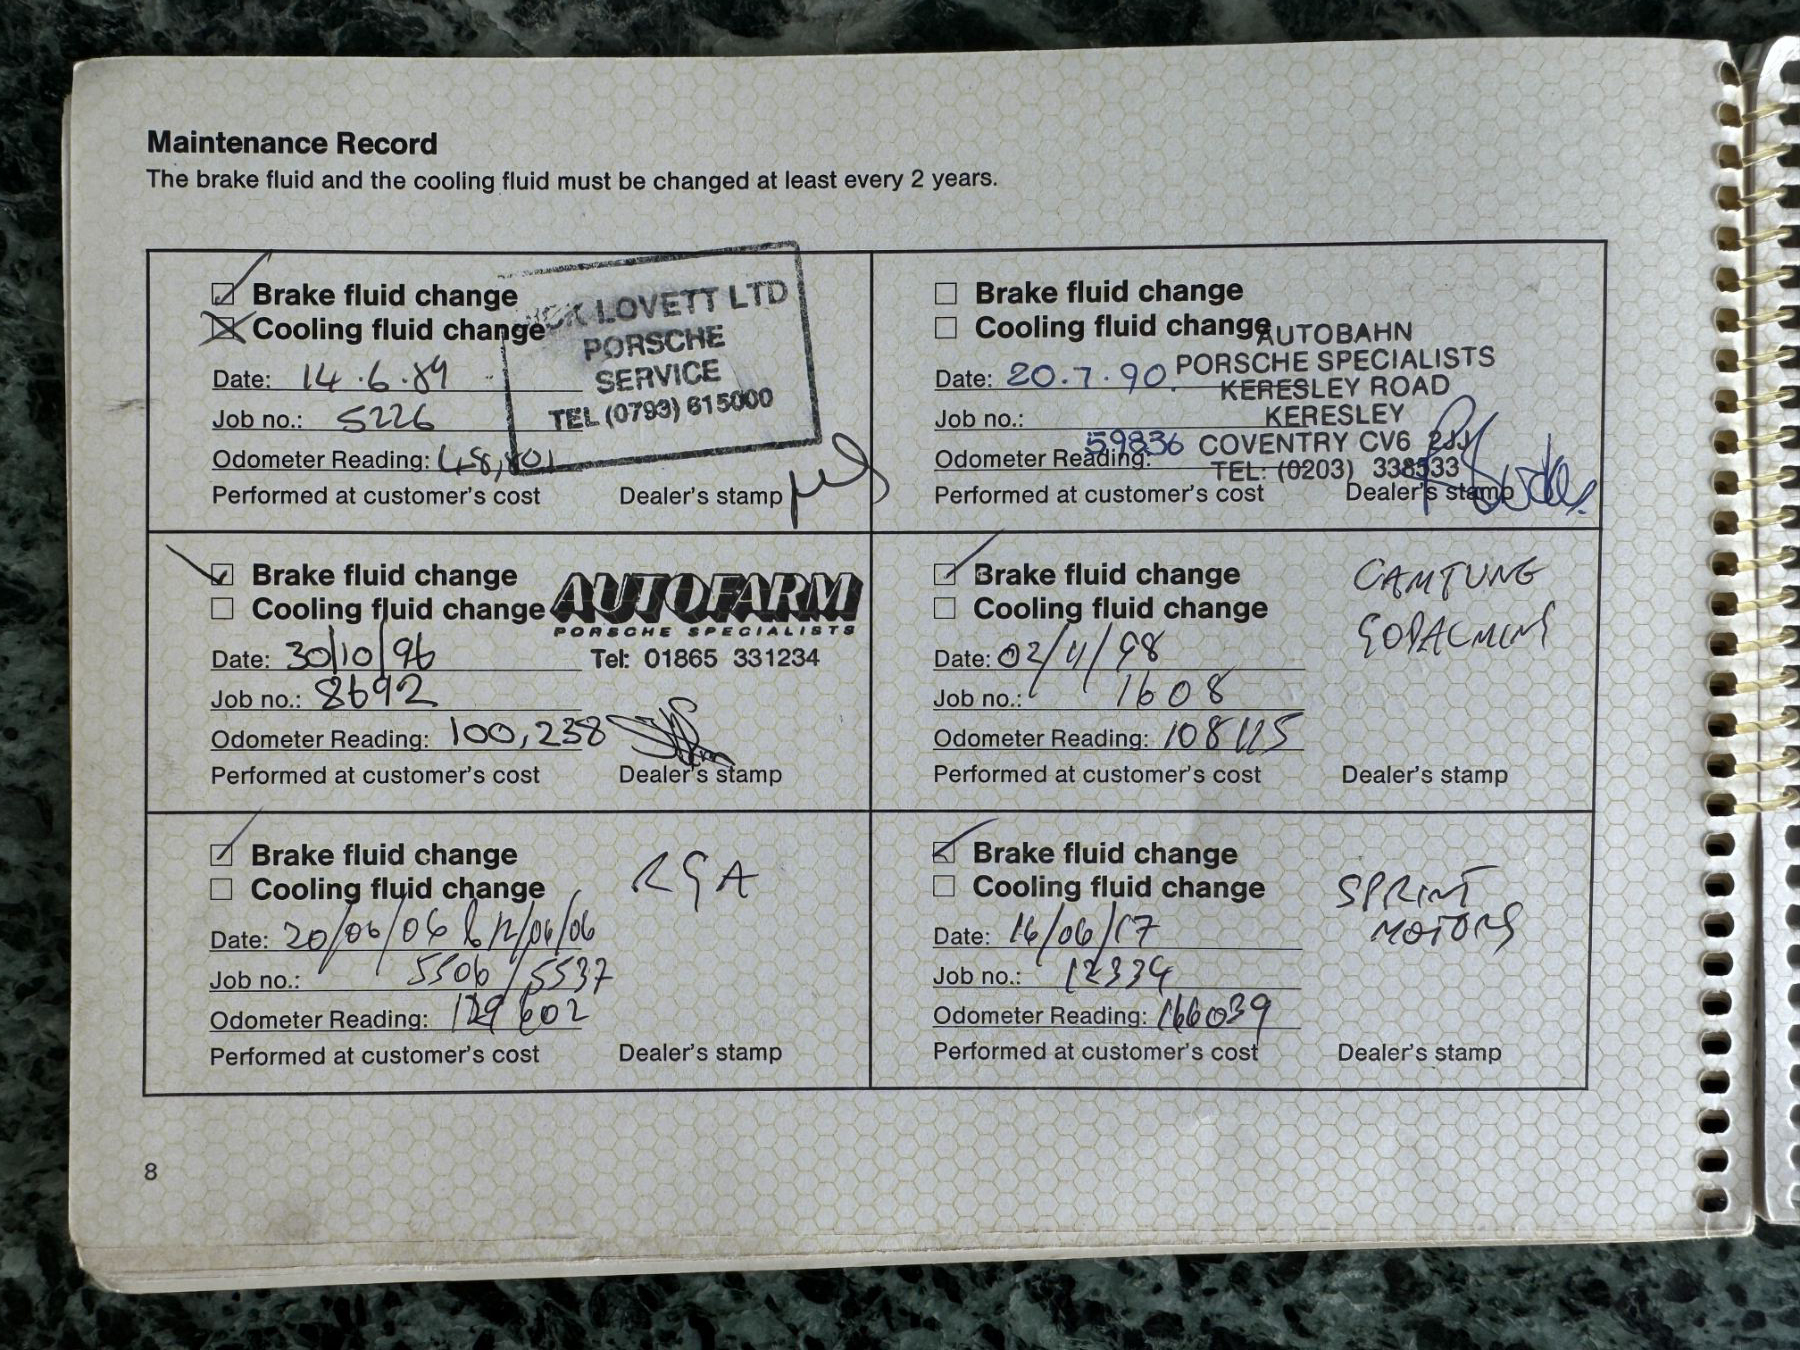 Maintenance Record
The brake fluid and the cooling fluid must be changed at least every 2 years.
Brake fluid change
Cooling fluid change
Date: 14.6.89
Job no.: 5226
Odometer Reading: 48,801
Performed at customer's cost
Dealer's stamp
LOVETT LTD
PORSCHE
SERVICE
TEL (0793) 615000
Brake fluid change
Cooling fluid change
Date: 20.7.90.
Job no.:
Odometer Reading: 59836
Performed at customer's cost
Dealer's stamp
AUTOBAHN
PORSCHE SPECIALISTS
KERESLEY ROAD
KERESLEY
COVENTRY CV6 2JJ
TEL: (0203) 338533
Brake fluid change
Cooling fluid change
Date: 30/10/96
Job no.: 8692
Odometer Reading: 100,238
Performed at customer's cost
Dealer's stamp
AUTOFARM
PORSCHE SPECIALISTS
Tel: 01865 331234
Brake fluid change
Cooling fluid change
Date: 02/11/98
Job no.: 1608
Odometer Reading: 108115
Performed at customer's cost
Dealer's stamp
CAMTUNE
GODALMING
Brake fluid change
Cooling fluid change
Date: 20/06/06 & 12/06/06
Job no.: 5506/5537
Odometer Reading: 129602
Performed at customer's cost
Dealer's stamp
RGA
Brake fluid change
Cooling fluid change
Date: 16/06/17
Job no.: 12334
Odometer Reading: 166039
Performed at customer's cost
Dealer's stamp
SPRINT
MOTORS
8